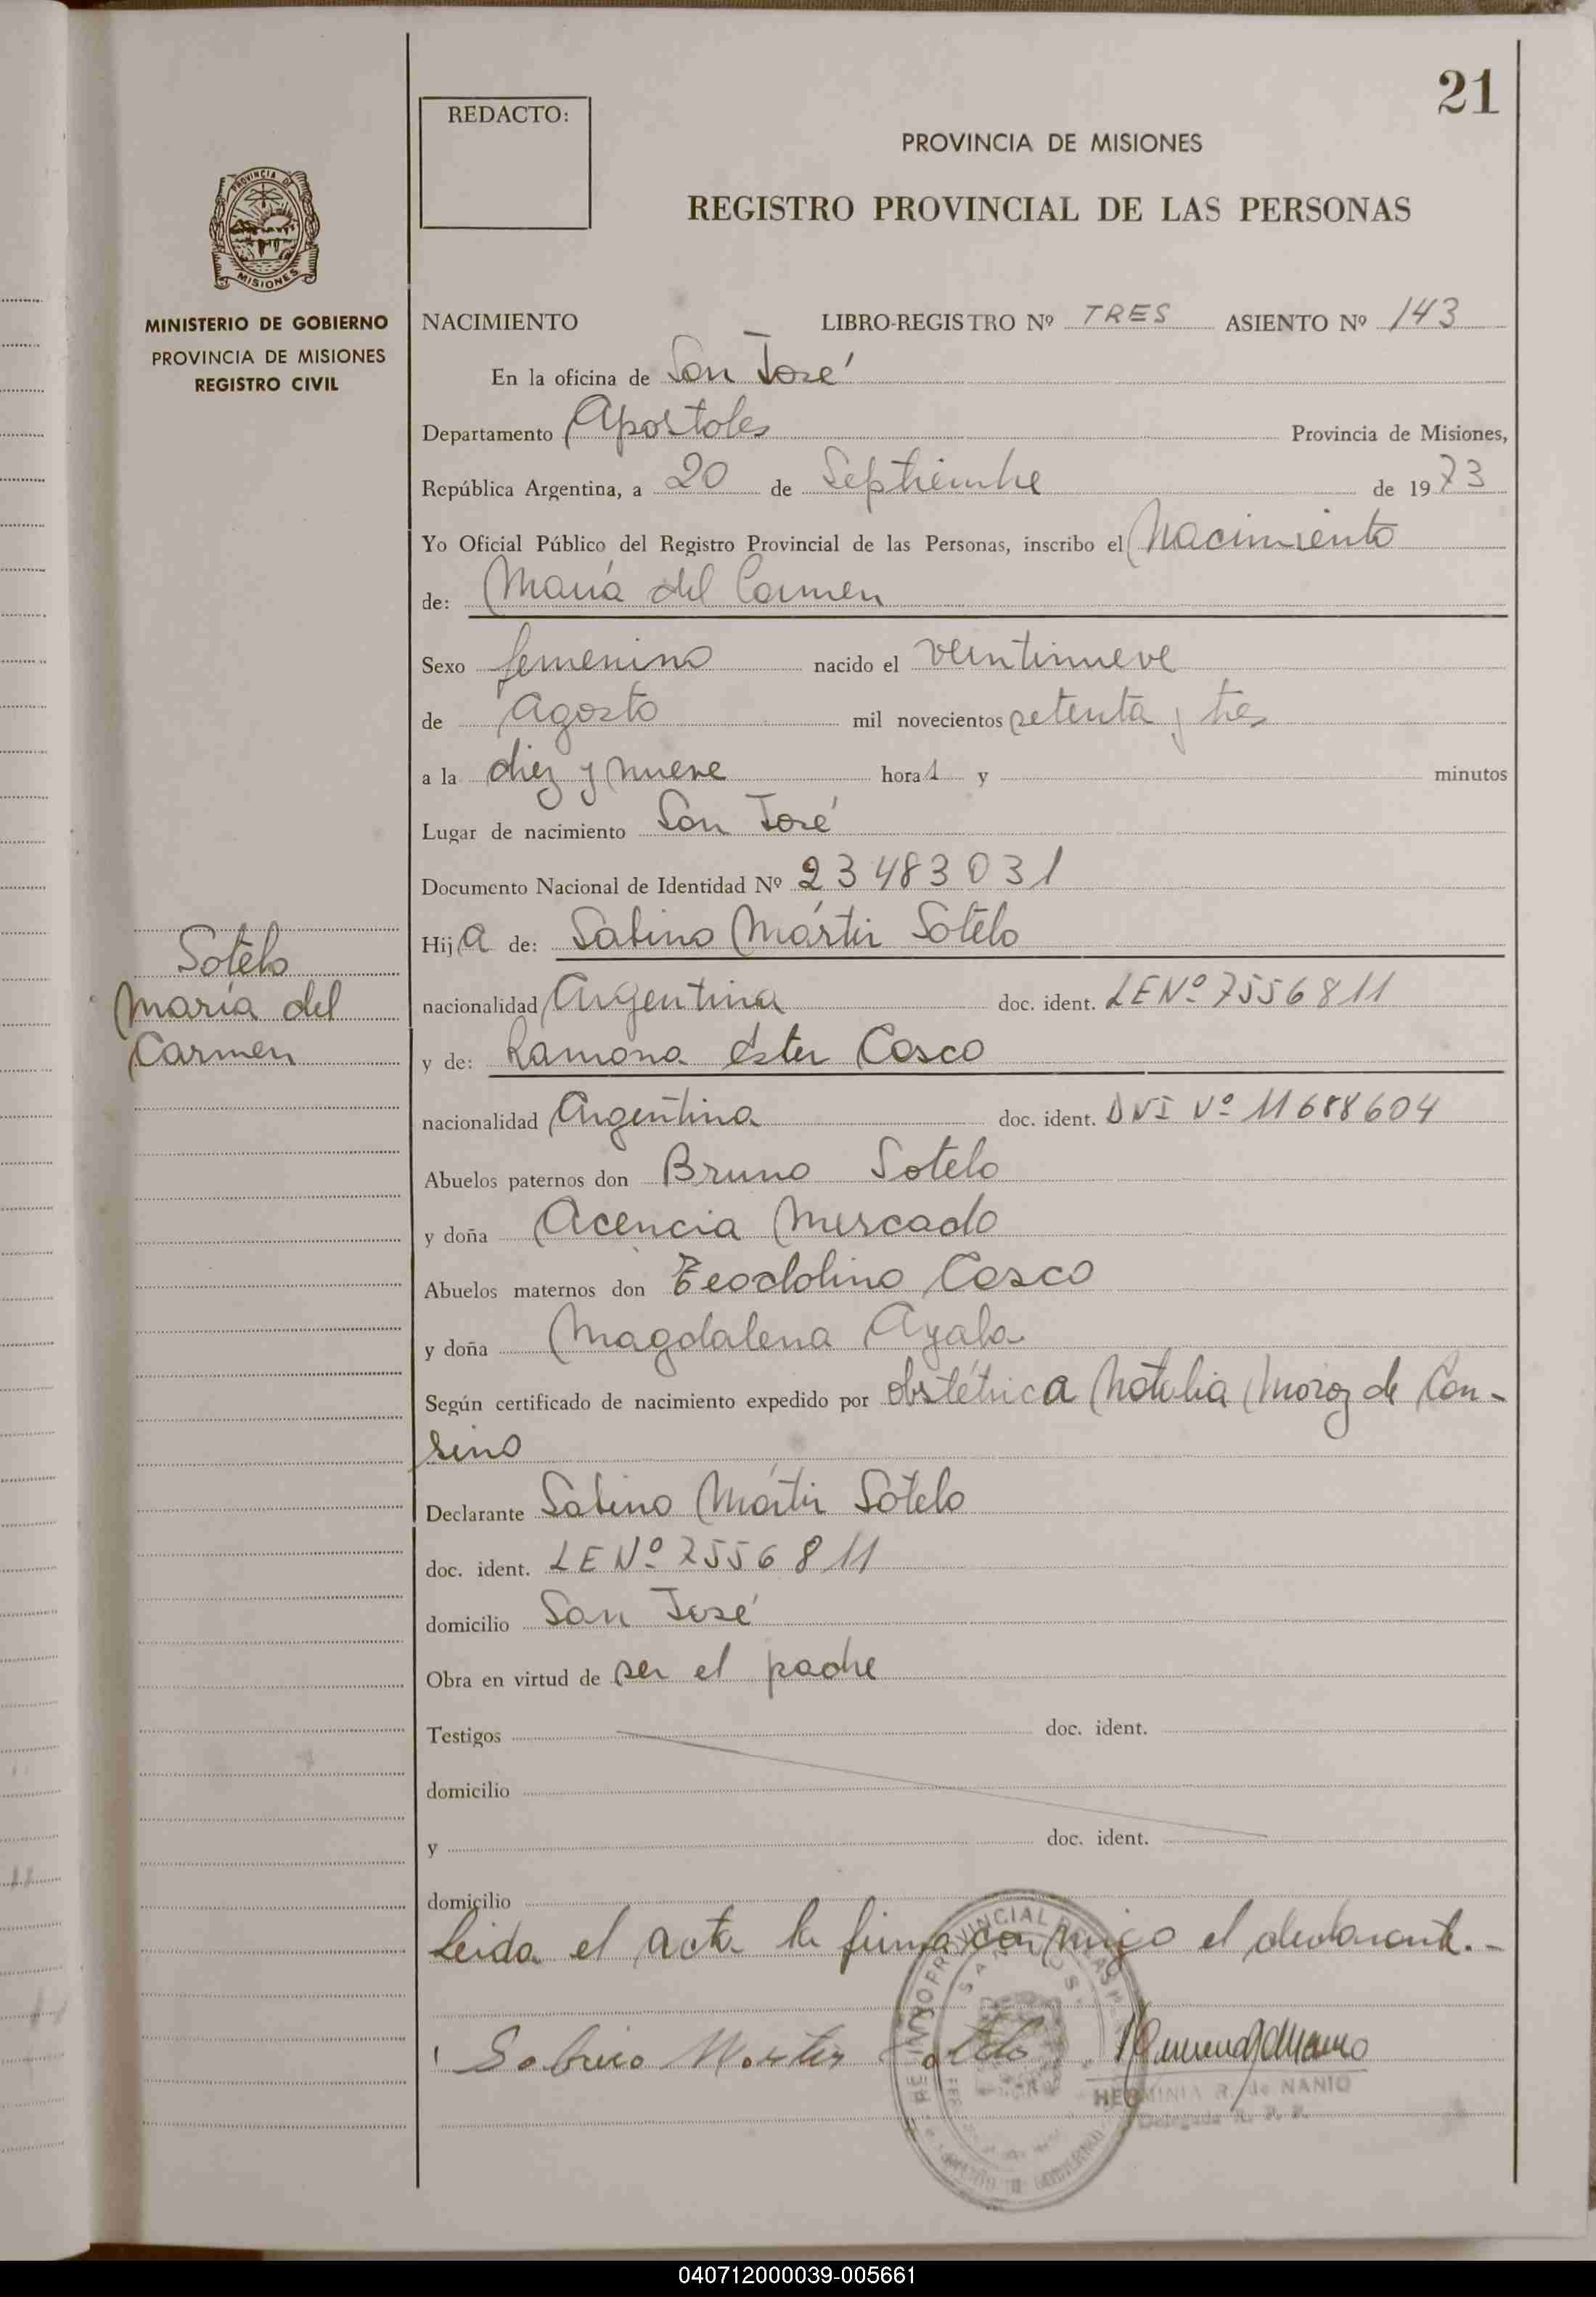 21
REDACTO:
PROVINCIA DE MISIONES
REGISTRO PROVINCIAL DE LAS PERSONAS
PROVINCIA DE
MISIONES
MINISTERIO DE GOBIERNO
PROVINCIA DE MISIONES
REGISTRO CIVIL
NACIMIENTO LIBRO-REGISTRO Nº TRES ASIENTO Nº 143
En la oficina de San José
Departamento Apostoles Provincia de Misiones,
República Argentina, a 20 de Septiembre de 1973
Yo Oficial Público del Registro Provincial de las Personas, inscribo el Nacimiento
de: María del Carmen
Sexo femenino nacido el veintinueve
de Agosto mil novecientos setenta y tres
a la diez y nueve hora s y minutos
Lugar de nacimiento San José
Documento Nacional de Identidad Nº 23483031
Hija de: Sabino Mártir Sotelo
nacionalidad Argentina doc. ident. LE Nº 7556811
y de: Ramona Ester Cosco
nacionalidad Argentina doc. ident. DNI Nº 11688604
Abuelos paternos don Bruno Sotelo
y doña Acencia Mercado
Abuelos maternos don Teodolino Cosco
y doña Magdalena Ayala
Según certificado de nacimiento expedido por obstétrica Natalia Moroz de Can-
sino
Declarante Sabino Mártir Sotelo
doc. ident. LE Nº 7556811
domicilio San José
Obra en virtud de ser el padre
Testigos doc. ident.
domicilio
y doc. ident.
domicilio
Leida el acta la firma conmigo el declarante.-
Sabino Martir Sotelo
HERMINIA R. de NANIO
Delegada R. P. P.
Sotelo
María del
Carmen
040712000039-005661